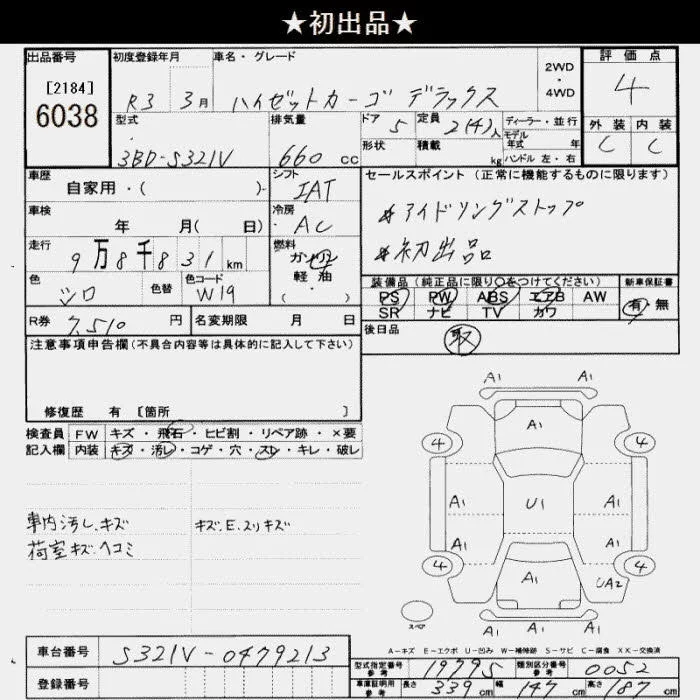 ★初出品★
出品番号
[2184]
6038
初度登録年月
R3 3月
車名・グレード
ハイゼットカーゴ デラックス
2WD
・
4WD
評価点
4
外装 内装
C C
型式
3BD-S321V
排気量
660 cc
ドア
5
定員
2(4)人
ディーラー・並行
モデル
年式 年
形状
積載
kg
ハンドル 左・右
車歴
自家用・( )
シフト
IAT
セールスポイント (正常に機能するものに限ります)
*アイドリングストップ
*初出品
車検
年 月( 日)
冷房
AC
走行
9万8千831km
燃料
ガソリン
軽油
( )
色
シロ
色替
色コード
W19
装備品 (純正品に限り〇をつけてください)
PS PW ABS エアB AW
SR ナビ TV カワ
新車保証書
有・無
R券 7,510 円
名変期限 月 日
後日品
取
注意事項申告欄(不具合内容等は具体的に記入して下さい)
修復歴 有 [箇所 ]
検査員 FW キズ・飛石・ヒビ割・リペア跡・×要
記入欄 内装 キズ・汚レ・コゲ・穴・スレ・キレ・破レ
車内汚レ、キズ
荷室キズ、ヘコミ
キズ、E、スリキズ
A1 A1
A1
4 4
A1 U1 A1
A1 A1
4 4
A1 UA2
A1 A1
スペア
A-キズ E-エクボ U-凹み W-補修跡 S-サビ C-腐食 XX-交換済
車台番号 S321V-0479213
登録番号
型式指定番号
参考
19795
類別区分番号
参考
0052
車庫証明用
参考
長さ 339cm 幅 147cm 高さ 187cm